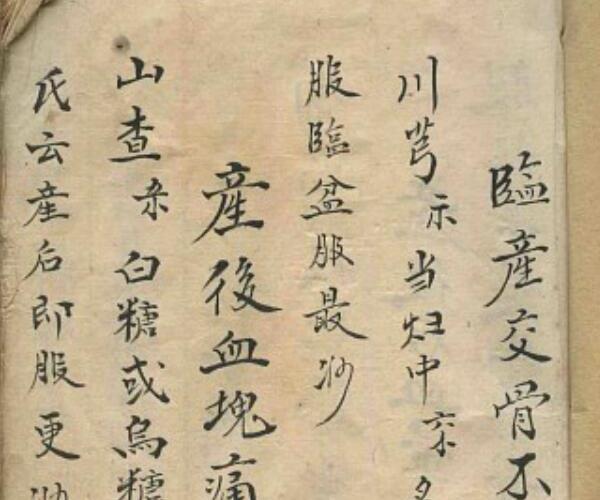 臨産交骨不
川芎 当归中
服臨盆服最妙
産後血塊痛
山查 白糖或烏糖
氏云産后即服更妙